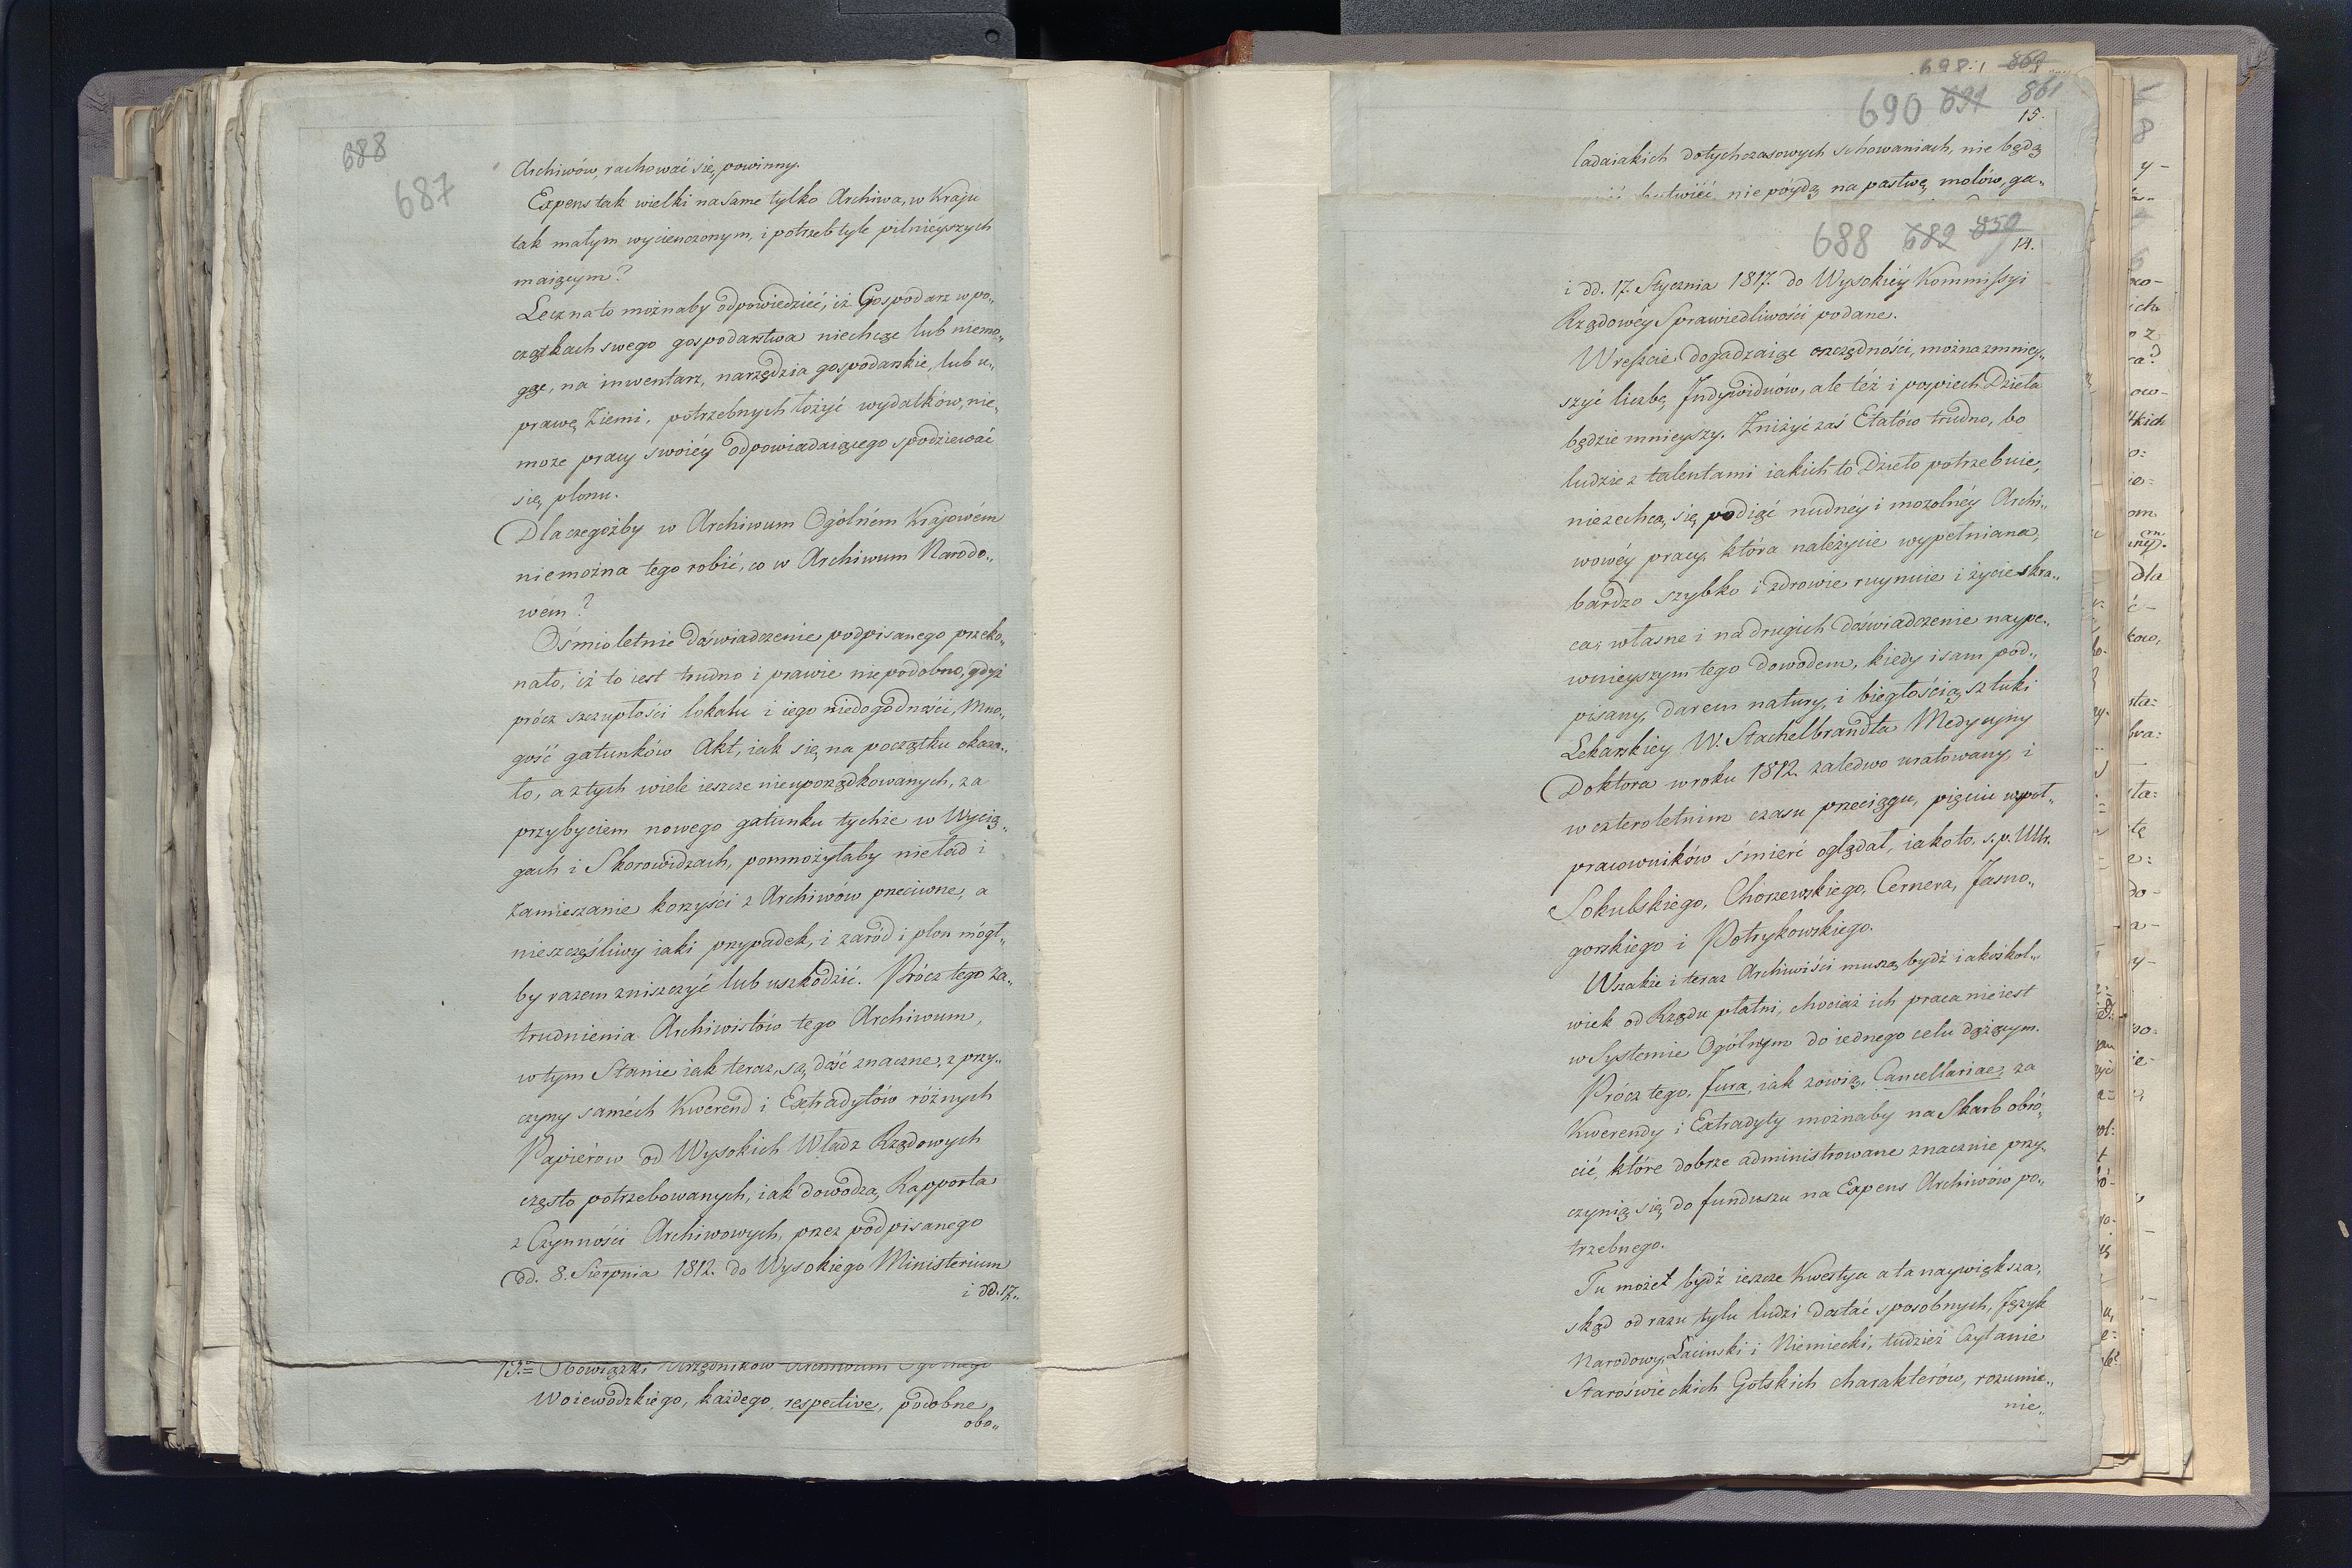 688
687
Archiwów, rachować się powinny.
Expens tak wielki na same tylko Archiwa, w Kraju
tak małym wycienczonym, i potrzeb tyle pilnieyszych
maiącym?
Lecz na to możnaby odpowiedzieć, iż Gospodarz w po„
czątkach swego gospodarstwa niechcąc lub niemo„
gąc, na inwentarz, narzędzia gospodarskie, lub u„
prawę Ziemi, potrzebnych łożyć wydatków, nie„
może pracy swoiéy odpowiadaiącego spodziewać
się plonu.
Dlaczegożby w Archiwum Ogólném Krajowém
niemożna tego robić, co w Archiwum Narodo„
wém?
Ośmioletnie doświadczenie podpisanego przeko„
nało, iż to iest trudno i prawie niepodobno, gdyż
prócz szczupłości lokalu i iego niedogodności, Mno„
gość gatunków Akt, iak się na początku okaza„
ło, a z tych wiele ieszcze nieuporządkowanych, za
przybyciem nowego gatunku tychże w Wycią„
gach i Skorowidzach, pomnożyłaby nieład i
zamieszanie korzyści z Archiwów przeciwne, a
nieszczęśliwy iaki przypadek, i zaród i plon mógł„
by razem zniszczyć lub uszkodzić. Prócz tego za„
trudnienia Archiwistów tego Archiwum,
w tym Stanie iak teraz, są dość znaczne, z przy„
czyny saméch Kwerend i Extradytów różnych
Papiérów od Wysokich Władz Rządowych
często potrzebowanych, iak dowodzą Rapporta
z Czynności Archiwowych, przez podpisanego
dd. 8. Sierpnia 1812. do Wysokiego Ministerium
i dd. 17„
13.= Obowiązki Urzędników Archiwum Ogólnego
Woiewódzkiego, każdego respective, podobne
obo„
698.1 869
690 691 861
15.
ladaiakich dotychczasowych schowaniach, nie będą
butwiéć, nie póydą na pastwę molów, ga„
688 682 859
14.
i dd. 17. Stycznia 1817. do Wysokiéy Kommissyi
Rządowéy Sprawiedliwości podane.
Wreszcie dogadzaiąc oszczędności, można zmniey„
szyć liczbę Indywiduów, ale téż i pospiech Dzieła
będzie mnieyszy. Zniżyć zaś Etatów trudno, bo
ludzie z talentami iakich to Dzieło potrzebuie,
niezechcą się podiąć nudnéy i mozolnéy Archi„
wowéy pracy, która należycie wypełniana,
bardzo szybko i zdrowie ruynuie i życie skra„
ca; własne i na drugich doświadczenie naype„
wnieyszym tego dowodem, kiedy i sam pod„
pisany, darem natury, i biegłością sztuki
Lekarskiey W. Stachelbrandta Medycyny
Doktora w roku 1812. zaledwo uratowany, i
w czteroletnim czasu przeciągu, pięciu współ„
pracowników śmierć oglądał, iako to. s. p. Ur.
Sokulskiego, Chorzewskiego, Cernera, Jasno„
gorskiego i Potrykowskiego.
Wszakże i teraz Archiwiści muszą bydź iakożkol„
wiek od Rządu płatni, chociaż ich praca nieiest
w Systemie Ogólnym do iednego celu dążącym.
Prócz tego, Jura, iak zowią, Cancellariae, za
Kwerendy i Extradyty możnaby na Skarb obró„
cić, które dobrze administrowane znacznie przy„
czynią się do funduszu na Expens Archiwów po„
trzebnego.
Tu możet bydź ieszcze Kwestya a ta naywiększa,
skąd od razu tylu ludzi dostać sposobnych, Język
Narodowy, Łacinski i Niemiecki, tudzież Czytanie
Staroświeckich Gotskich charakterów, rozumie„
nie„